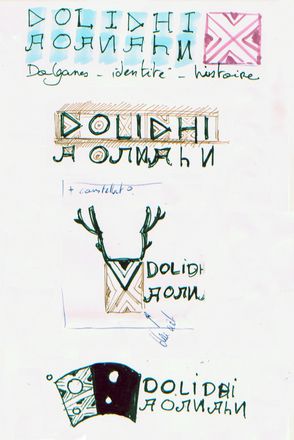 DOLIDHI
ДОЛИДҺИ
Dolganes - identité - histoire
DOLIDHI
ДОЛИДҺИ
+ constellat°
DOLIDHI
ДОЛИ
DOLIDHI
ДОЛИДҺИ